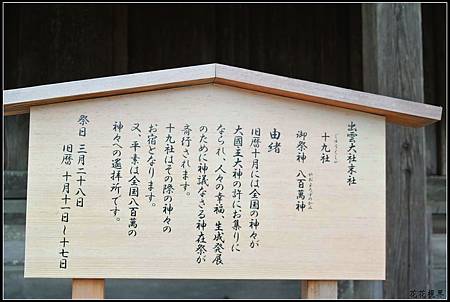 出雲大社末社
十九社
御祭神 八百萬神
やおよろずのかみ
由緒
旧暦十月には全国の神々が
大國主大神の許にお集りに
なられ、人々の幸福、生成発展
のために神議なさる神在祭が
斎行されます。
十九社はその際の神々の
お宿となります。
又、平素は全国八百萬の
神々への遙拝所です。
祭日 三月二十八日
旧暦 十月十一日〜十七日